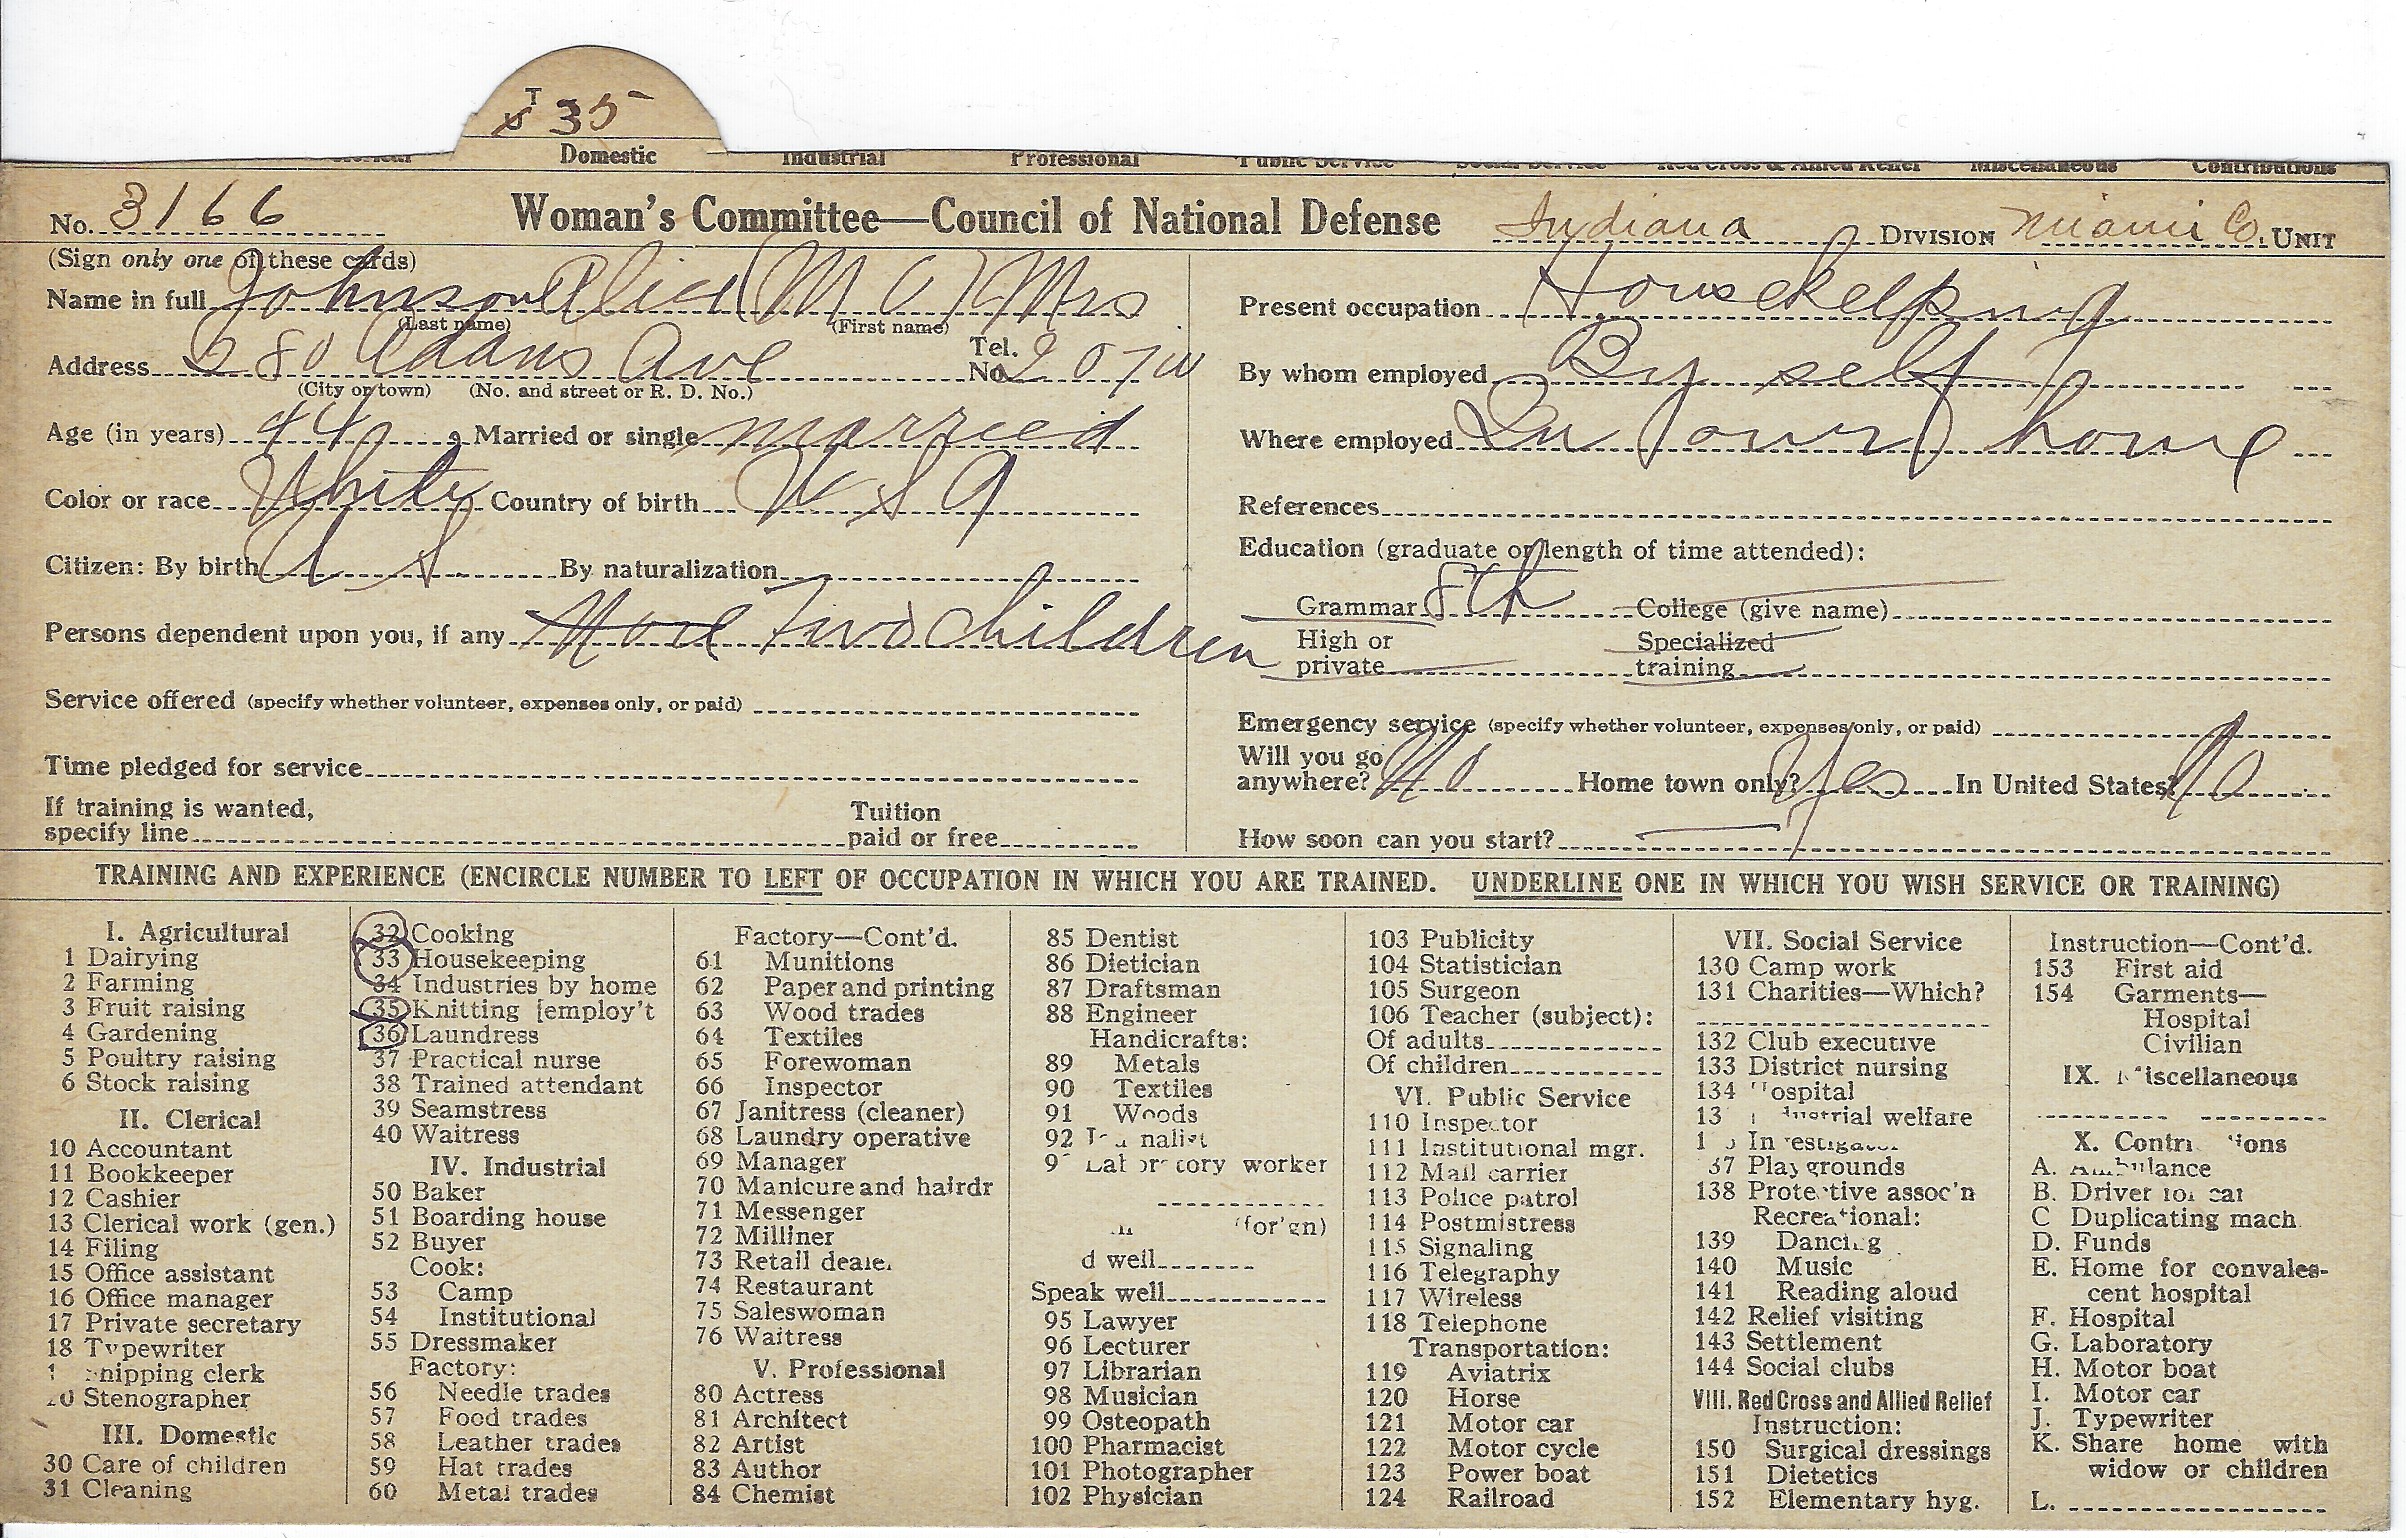 T 35
Domestic Industrial Professional Public Service Social Service Red Cross & Allied Relief Miscellaneous Contributions
No. 3166 Woman's Committee—Council of National Defense Indiana DIVISION Miami Co. UNIT
(Sign only one of these cards)
Name in full Johnson Alice (M C) Mrs
(Last name) (First name)
Address 280 Adams Ave Tel. No. 207W
(City or town) (No. and street or R. D. No.)
Age (in years) 44, Married or single married
Color or race White Country of birth U S A
Citizen: By birth U S By naturalization
Persons dependent upon you, if any Two children
Service offered (specify whether volunteer, expenses only, or paid)
Time pledged for service
If training is wanted,
specify line Tuition
paid or free
Present occupation Housekeeping
By whom employed By self
Where employed In own home
References
Education (graduate or length of time attended):
Grammar 8th College (give name)
High or private Specialized training
Emergency service (specify whether volunteer, expenses only, or paid)
Will you go
anywhere? No Home town only? Yes In United States? No
How soon can you start?
TRAINING AND EXPERIENCE (ENCIRCLE NUMBER TO LEFT OF OCCUPATION IN WHICH YOU ARE TRAINED. UNDERLINE ONE IN WHICH YOU WISH SERVICE OR TRAINING)
I. Agricultural
1 Dairying
2 Farming
3 Fruit raising
4 Gardening
5 Poultry raising
6 Stock raising
II. Clerical
10 Accountant
11 Bookkeeper
12 Cashier
13 Clerical work (gen.)
14 Filing
15 Office assistant
16 Office manager
17 Private secretary
18 Typewriter
Shipping clerk
20 Stenographer
III. Domestic
30 Care of children
31 Cleaning
32 Cooking
33 Housekeeping
34 Industries by home
35 Knitting [employ't
36 Laundress
37 Practical nurse
38 Trained attendant
39 Seamstress
40 Waitress
IV. Industrial
50 Baker
51 Boarding house
52 Buyer
Cook:
53 Camp
54 Institutional
55 Dressmaker
Factory:
56 Needle trades
57 Food trades
58 Leather trades
59 Hat trades
60 Metal trades
Factory—Cont'd.
61 Munitions
62 Paper and printing
63 Wood trades
64 Textiles
65 Forewoman
66 Inspector
67 Janitress (cleaner)
68 Laundry operative
69 Manager
70 Manicure and hairdr
71 Messenger
72 Milliner
73 Retail dealer
74 Restaurant
75 Saleswoman
76 Waitress
V. Professional
80 Actress
81 Architect
82 Artist
83 Author
84 Chemist
85 Dentist
86 Dietician
87 Draftsman
88 Engineer
Handicrafts:
89 Metals
90 Textiles
91 Woods
92 Journalist
Laboratory worker
(for'gn)
d well
Speak well
95 Lawyer
96 Lecturer
97 Librarian
98 Musician
99 Osteopath
100 Pharmacist
101 Photographer
102 Physician
103 Publicity
104 Statistician
105 Surgeon
106 Teacher (subject):
Of adults
Of children
VI. Public Service
110 Inspector
111 Institutional mgr.
112 Mail carrier
113 Police patrol
114 Postmistress
115 Signaling
116 Telegraphy
117 Wireless
118 Telephone
Transportation:
119 Aviatrix
120 Horse
121 Motor car
122 Motor cycle
123 Power boat
124 Railroad
VII. Social Service
130 Camp work
131 Charities—Which?
132 Club executive
133 District nursing
134 Hospital
Industrial welfare
Investigator
137 Playgrounds
138 Protective assoc'n
Recreational:
139 Dancing
140 Music
141 Reading aloud
142 Relief visiting
143 Settlement
144 Social clubs
VIII. Red Cross and Allied Relief
Instruction:
150 Surgical dressings
151 Dietetics
152 Elementary hyg.
Instruction—Cont'd.
153 First aid
154 Garments—
Hospital
Civilian
IX. Miscellaneous
X. Contributions
A. Ambulance
B. Driver for car
C Duplicating mach.
D. Funds
E. Home for convales-
cent hospital
F. Hospital
G. Laboratory
H. Motor boat
I. Motor car
J. Typewriter
K. Share home with
widow or children
L.